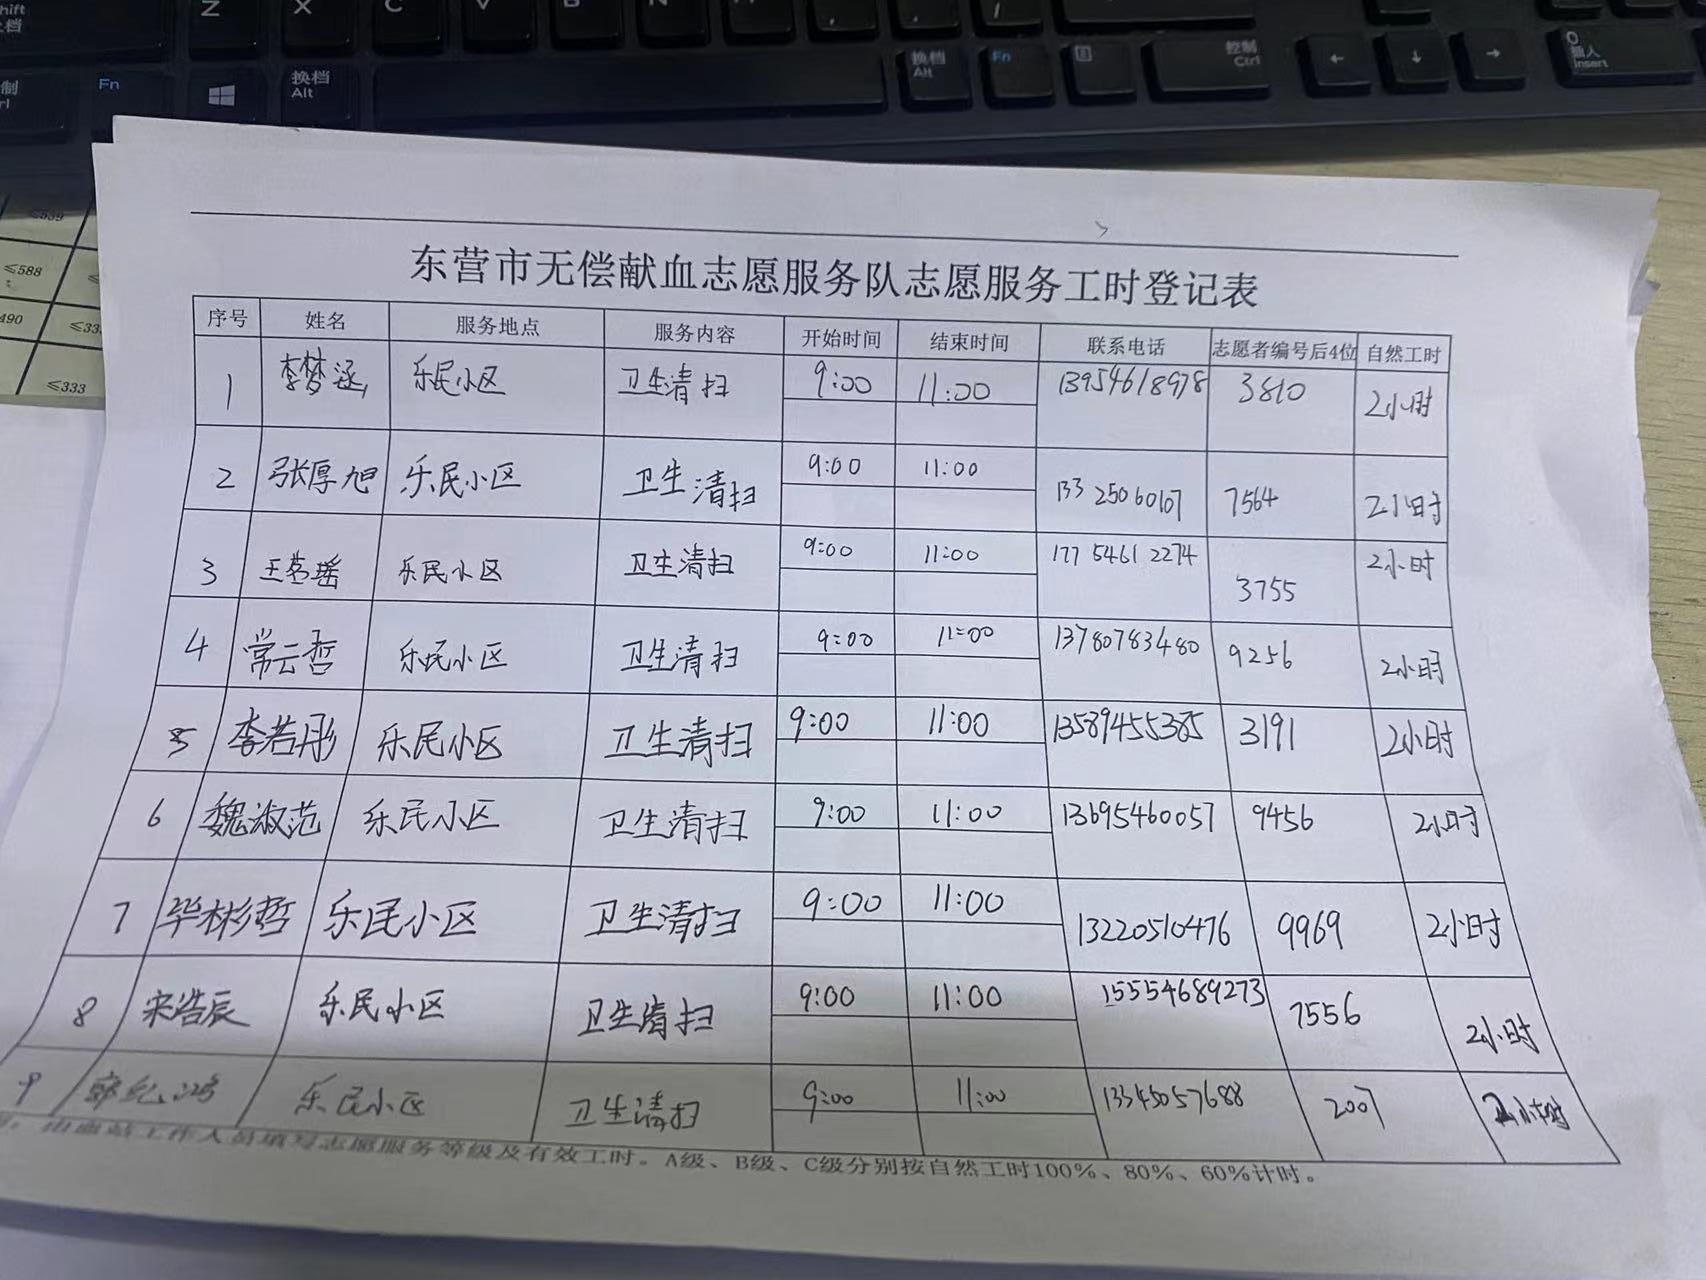 Shift
文档
Z
X
C
V
B
N
M
Fn
换档
Alt
换档
Alt
Fn
控制
Ctrl
←
↓
→
0
插入
Insert
≤539
≤588
490
≤333
东营市无偿献血志愿服务队志愿服务工时登记表
序号 姓名 服务地点 服务内容 开始时间 结束时间 联系电话 志愿者编号后4位 自然工时
1 李梦涵 乐民小区 卫生清扫 9:00 11:00 13954618978 3810 2小时
2 张厚旭 乐民小区 卫生清扫 9:00 11:00 133 25060107 7564 2小时
3 王艺瑶 乐民小区 卫生清扫 9:00 11:00 177 5461 2274 3755 2小时
4 常云哲 乐民小区 卫生清扫 9:00 11:00 13780783480 9256 2小时
5 李若彤 乐民小区 卫生清扫 9:00 11:00 13589455385 3191 2小时
6 魏淑范 乐民小区 卫生清扫 9:00 11:00 13695460057 9456 2小时
7 毕彬哲 乐民小区 卫生清扫 9:00 11:00 13220510476 9969 2小时
8 宋浩辰 乐民小区 卫生清扫 9:00 11:00 15554689273 7556 2小时
9 乐民小区 卫生清扫 9:00 11:00 13345057688 2007 2小时
由血站工作人员填写志愿服务等级及有效工时。A级、B级、C级分别按自然工时100%、80%、60%计时。